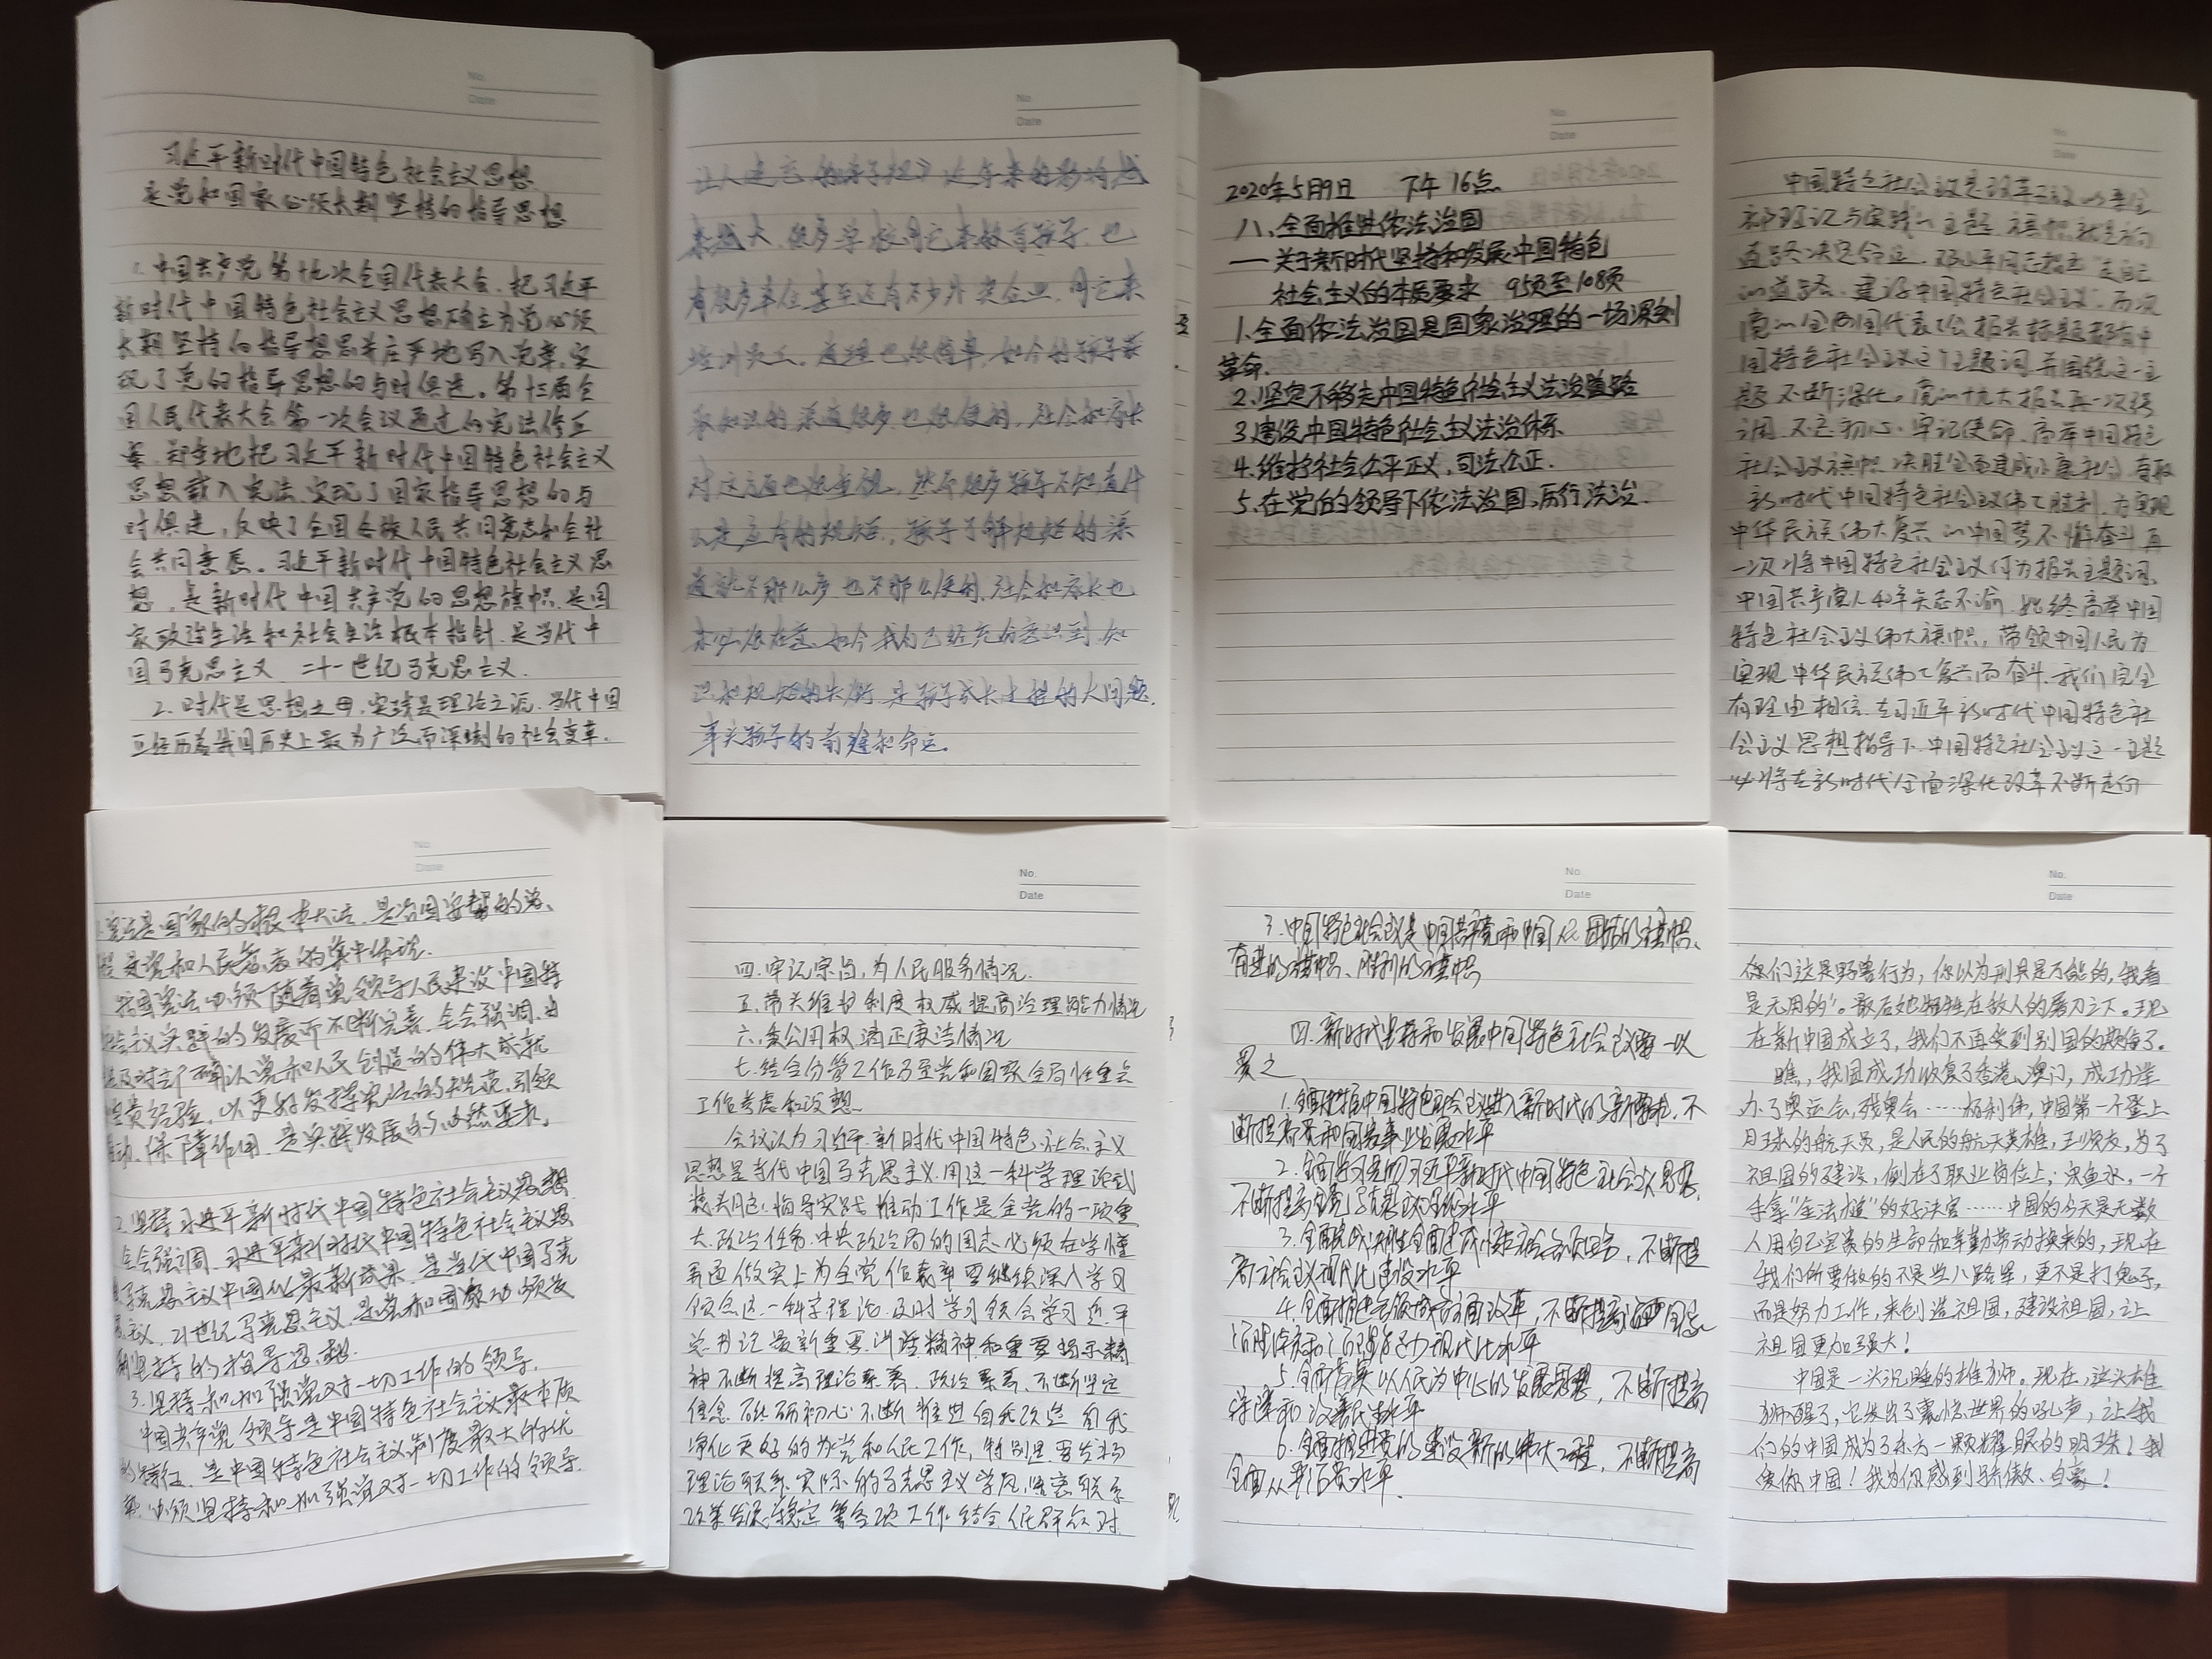 No.
Date
习近平新时代中国特色社会主义思想
是党和国家必须长期坚持的指导思想
1. 中国共产党第十九次全国代表大会,把习近平
新时代中国特色社会主义思想确立为党必须
长期坚持的指导想思并庄严地写入党章,实
现了党的指导思想的与时俱进。第十三届全
国人民代表大会第一次会议通过的宪法修正
案,郑重地把习近平新时代中国特色社会主义
思想载入宪法,实现了国家指导思想的与
时俱进,反映了全国各族人民共同意志和全社
会共同意愿。习近平新时代中国特色社会主义思
想,是新时代中国共产党的思想旗帜,是国
家政治生活和社会生活根本指针,是当代中
国马克思主义、二十一世纪马克思主义.
2. 时代是思想之母,实践是理论之源。当代中国
正经历着我国历史上最为广泛而深刻的社会变革.
No.
Date
近年来的影响越
来越大,很多学校用它来教育孩子,也
有很多单位甚至还有不少外资企业,用它来
培训员工。道理也很简单,如今的孩子获
取知识的渠道很多,也很便利,社会和家长
对这方面也很重视,然而很多孩子不知道什
么是应有的规矩,孩子了解规矩的渠
道就不那么多也不那么便利,社会和家长也
未必很在意,如今我们已经充分意识到,知
识和规矩的失衡,是孩子成长过程的大问题,
事关孩子的前途和命运。
No.
Date
2020年5月9日 下午16点
八、全面推进依法治国
——关于新时代坚持和发展中国特色
社会主义的本质要求 95页至108页
1.全面依法治国是国家治理的一场深刻
革命.
2.坚定不移走中国特色社会主义法治道路
3.建设中国特色社会主义法治体系
4.维护社会公平正义,司法公正.
5.在党的领导下依法治国,厉行法治.
No.
Date
中国特色社会主义是改革开放以来全
部理论与实践的主题,旗帜就是方向
道路决定命运,邓小平同志提出“走自己
的道路,建设中国特色社会主义”,历次
党的全国代表大会报告标题都有中
国特色社会主义这个主题词,并围绕这一主
题不断深化。党的十九大报告再一次强
调,不忘初心,牢记使命,高举中国特色
社会主义旗帜,决胜全面建成小康社会,夺取
新时代中国特色社会主义伟大胜利,为实现
中华民族伟大复兴的中国梦不懈奋斗,再
一次将中国特色社会主义作为报告主题词,
中国共产党人40年矢志不渝,始终高举中国
特色社会主义伟大旗帜,带领中国人民为
实现中华民族伟大复兴而奋斗.我们完全
有理由相信,在习近平新时代中国特色社
会主义思想指导下,中国特色社会主义这一主题
必将在新时代全面深化改革不断走向
No.
Date
1.宪法是国家的根本大法,是治国安邦的总
是党和人民意志的集中体现.
我国宪法必须随着党领导人民建设中国特
社会主义实践的发展而不断完善.全会强调,由
及时 确认党和人民创造的伟大成就
宝贵经验,以更好发挥宪法的规范、引领
推动、保障作用,是实践发展的必然要求.
2.坚持习近平新时代中国特色社会主义思想
全会强调,习近平新时代中国特色社会主义思
马克思主义中国化最新成果,是当代中国马克
主义,21世纪马克思主义,是党和国家必须长
期坚持的指导思想.
3.坚持和加强党对一切工作的领导.
中国共产党领导是中国特色社会主义最本质
的特征,是中国特色社会主义制度最大的优
势,必须坚持和加强党对一切工作的领导.
No.
Date
四.牢记宗旨,为人民服务情况.
五.带头维护制度权威提高治理能力情况
六.秉公用权 清正廉洁情况
七.结合分管工作乃至党和国家全局性重点
工作考虑和设想.
会议认为习近平新时代中国特色社会主义
思想是当代中国马克思主义.用这一科学理论武
装头脑、指导实践 推动工作是全党的一项重
大政治任务.中央政治局的同志必须在学懂
弄通做实上为全党作表率 要继续深入学习
领会这一科学理论 及时学习领会学习近平
总书记最新重要讲话精神和重要指示精
神不断提高理论素养、政治素养、不断坚定
信念 砥砺初心 不断推进自我改造 自我
净化 更好的为党和人民工作,特别是要发扬
理论联系实际的马克思主义学风,紧密联系
改革发展稳定等各项工作 结合人民群众对
No.
Date
3.中国特色社会主义是中国共产党和中国人民团结的旗帜、
奋进的旗帜、胜利的旗帜
四.新时代坚持和发展中国特色社会主义要一以
贯之
1.全面把握中国特色社会主义进入新时代的新要求,不
断提高党和国家事业发展水平
2.全面学习贯彻习近平新时代中国特色社会主义思想,
不断提高全党马克思主义理论水平
3.全面完成决胜全面建成小康社会各项任务,不断提
高社会主义现代化建设水平
4.全面推进各领域各方面改革,不断提高
治理体系和治理能力现代化水平
5.全面落实以人民为中心的发展思想,不断提高
保障和改善民生水平
6.全面推进党的建设新的伟大工程,不断提高
全面从严治党水平.
No.
Date
你们这是野兽行为,你以为刑具是万能的,我看
是无用的”。最后她牺牲在敌人的屠刀之下。现
在新中国成立了,我们不再受到别国的欺侮了。
瞧,我国成功收复了香港、澳门,成功举
办了奥运会,残奥会……杨利伟,中国第一个登上
月球的航天员,是人民的航天英雄,王顺友,为了
祖国的建设,倒在了职业岗位上;宋鱼水,一个
手拿“金法槌”的好法官……中国的今天是无数
人用自己宝贵的生命和辛勤劳动换来的,现在
我们所要做的不是当八路军,更不是打鬼子,
而是努力工作,来创造祖国,建设祖国,让
祖国更加强大!
中国是一头沉睡的雄狮。现在,这头雄
狮醒了,它发出了震惊世界的吼声,让我
们的中国成为了东方一颗耀眼的明珠!我
爱你中国!我为你感到骄傲、自豪!